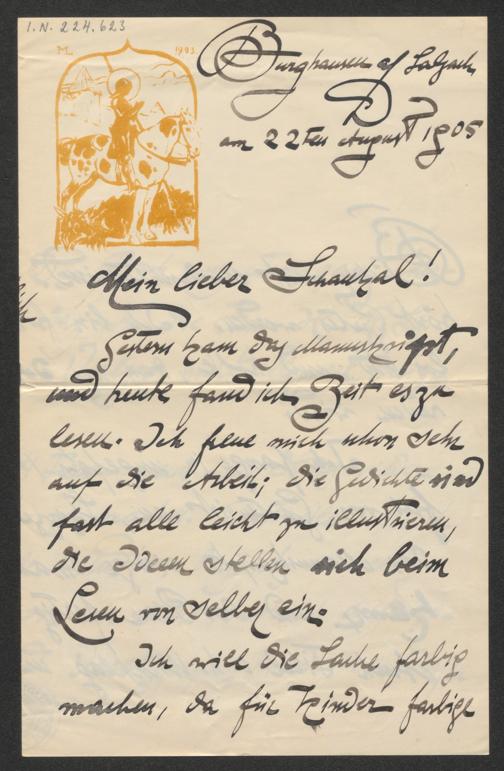 I.N. 224.623
ML 1903
Burghausen a/ Salzach
am 22ten August 1905
Mein lieber Schaukal!
Gestern kam das Manuskript,
und heute fand ich Zeit es zu
lesen. Ich freue mich schon sehr
auf die Arbeit; die Gedichte sind
fast alle leicht zu illustrieren,
die Ideeen stellen sich beim
Lesen von selber ein.
Ich will die Sache farbig
machen, da für Kinder farbige